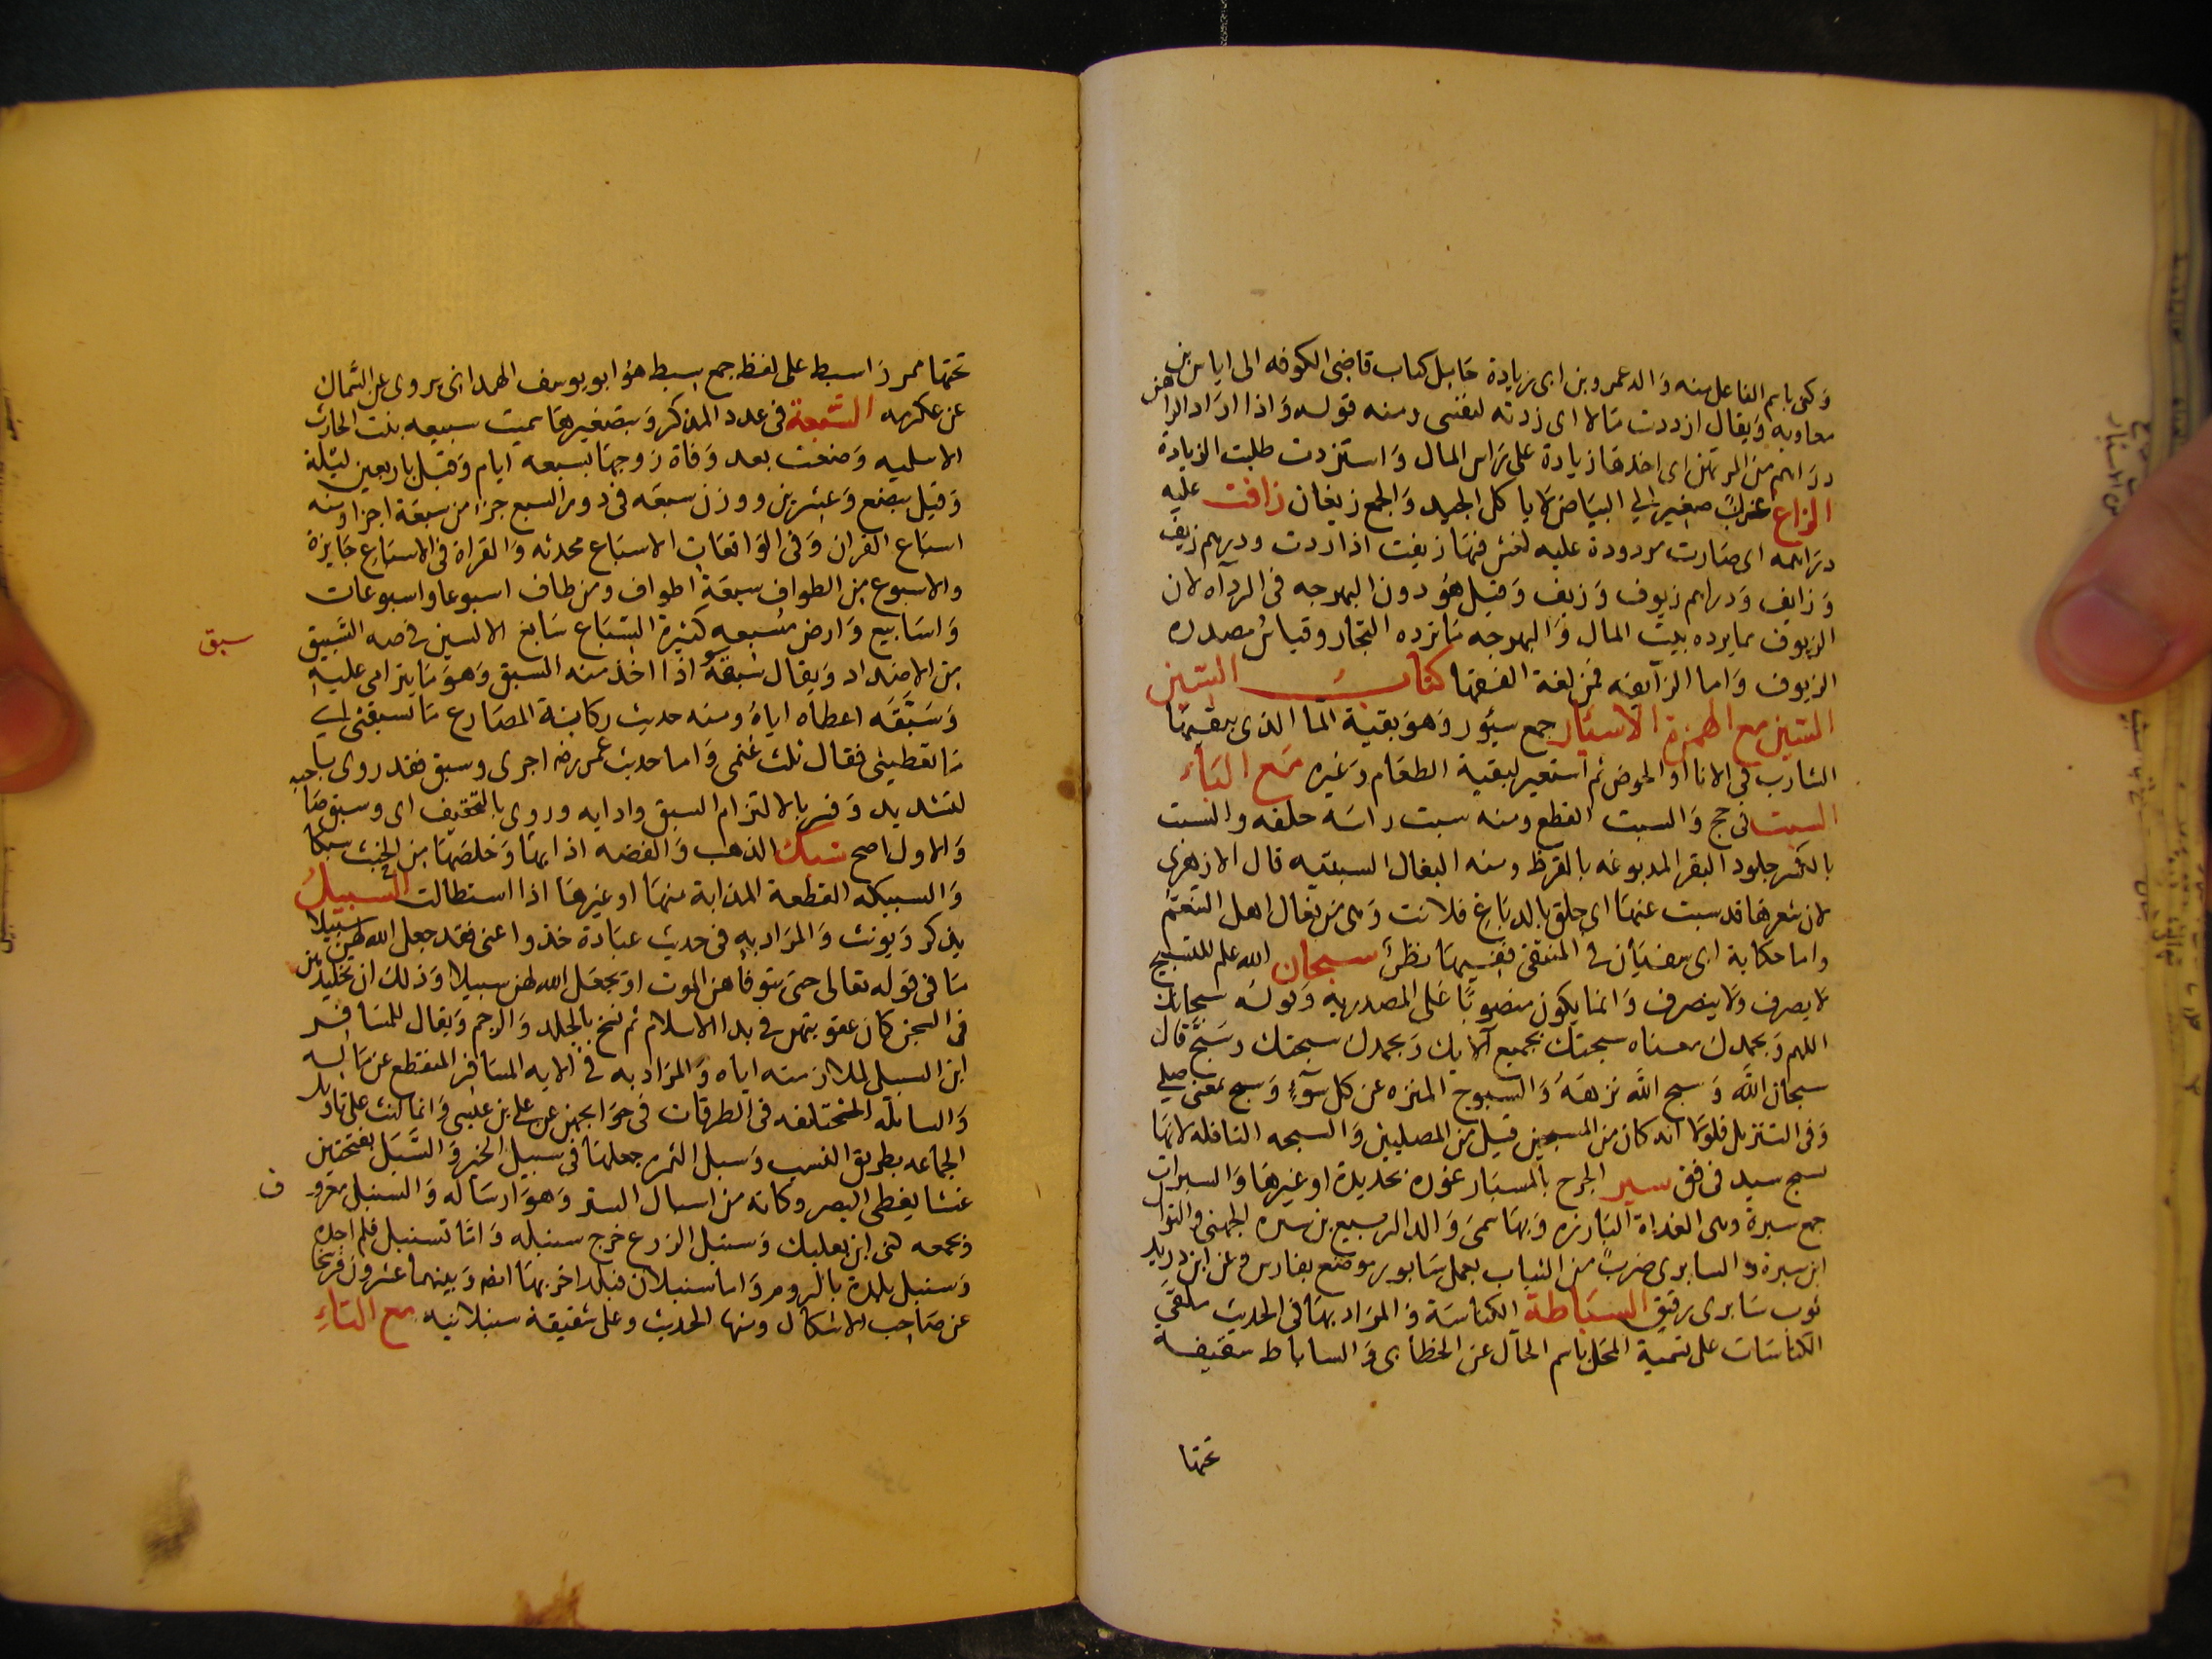 وكنى باسم الفاعل منه والد عمرو بن ابى زيادة حامل كتاب قاضى الكوفه الى اياس بن
معاويه ويقال ازددت مالا اى زدته لنفسى ومنه قوله واذا ازداد الراهن
دراهم من المرتهن اى اخذها زيادة على راس المال واستزدت طلبت الزيادة
الزاغ غراب صغير الى البياض لا ياكل الجيف والجمع زيغان زافت عليه
دراهمه اى صارت مردودة عليه لغش فيها زيفت اذا ردت ودرهم زيف
وزايف ودراهم زيوف وزيف وقيل هو دون البهرجه فى الرداه لان
الزيوف ما يرده بيت المال والبهرجه ما ترده التجار وقياس مصدره
الزيوف واما الزيافه فمن لغة الفقها كتاب السين
السين مع الهمزة الاسئار جمع سئور وهو بقية الما الذى يبقيها
الشارب فى الانا او الحوض ثم استعير لبقية الطعام وغيره مع الباء
السبت فى حج والسبت القطع ومنه سبت راسه حلقه والسبت
بالكسر جلود البقر المدبوغه بالقرظ ومنه النعال السبتيه قال الازهرى
لان شعرها قد سبت عنها اى حلق بالدباغ فلانت وهى من نعال اهل التنعم
واما حكاية ابى سفيان فى المنتقى ففيها نظر سبحان الله علم للتسبيح
لا يصرف ولا ينصرف وانما يكون منصوبا على المصدريه وقوله سبحانك
اللهم وبحمدك معناه سبحتك بجميع آلايك وبحمدك سبحتك وسبح قال
سبحان الله وسبح الله نزهه والسبوح المنزه عن كل سوء وسبح بمعنى صلى
وفى التنزيل فلولا انه كان من المسبحين قيل من المصلين والسبحه النافله لانها
سبح سبد فى فق سبر الجرح بالمسبار غوره بحديدة او غيرها والسبرات
جمع سبرة وهى الغداة الباردة وبها سمى والد الربيع بن سبره الجهنى والنزال
ابن سبرة والسابرى ضرب من الثياب يعمل بسابور موضع بفارس وعن ابن دريد
ثوب سابرى رقيق السباطة الكناسة والمراد بها فى الحديث ملقى
الكناسات على تسمية المحل باسم الحال عن الخطابى والساباط سقيفه
تحتها
تحتها ممر واسبط على لفظ جمع سبط هو ابو يوسف الهمدانى يروى عن السمان
عن عكرمه السبعة فى عدد المذكر وبتصغيرها سميت سبيعه بنت الحارث
الاسلميه وضعت بعد وفاة زوجها بسبعه ايام وقيل باربعين ليلة
وقيل ببضع وعشرين ووزن سبعه فى دو والسبع جزا من سبعة اجزا ومنه
اسباع القران وفى الواقعات الاسباع محدثه والقراة فى الاسباع جايزة
والاسبوع من الطواف سبعة اطواف ومن طاف اسبوعا واسبوعات
واسابيع وارض مسبعه كثيرة السباع سابغ الاليتين فى صه التسبيق
سبق
من الاضداد ويقال سبقه اذا اخذ منه السبق وهو ما يتراهن عليه
وسبقه اعطاه اياه ومنه حديث ركانة المصارع ما تسبقنى اى
ما تعطينى فقال ثلث غنمى واما حديث عمر رضه اجرى وسبق فقد روى
بالتشديد وفسر بالالتزام السبق وادايه وروى بالتخفيف اى وسبق صاحبه
والاول اصح سبك الذهب والفضه اذابها وخلصها من الخبث سبكا
والسبيكه القطعة المذابة منها او غيرها اذا استطالت السبيل
يذكر ويونث والمراد به فى حديث عبادة خذوا عنى فقد جعل الله لهن سبيلا
ما فى قوله تعالى حتى يتوفاهن الموت او يجعل الله لهن سبيلا وذلك ان تخليدهن
فى السجن كان عقوبتهن فى بدا الاسلام ثم نسخ بالجلد والرجم ويقال للمسافر
ابن السبيل لملازمته اياه والمراد به فى الايه المسافر المنقطع عن ماله
والسابله المختلفه فى الطرقات فى حوايجهم عن على بن عيسى وانما انث على تاويل
الجماعه بطريق النسب وسبل الثمر جعلها فى سبيل الخير والسبل بفتحتين
غشا يغطى البصر وكانه من اسبال الستر وهو ارساله والسنبل معروف
وبجمعه كنى ابن بعكك وسنبل الزرع خرج سنبله واما تسنبل فلم اجده
وسنبل بلدة بالروم واما سنبلان فبلد اخر بها ايضا وبينهما عشرون فرسخا
عن صاحب الاشكال ومنها الحديث وعلى شقيقة سنبلانيه مع التاء